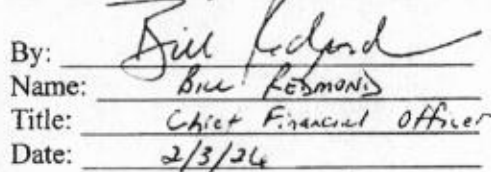 By: Bill Redmond
Name: Bill Redmond
Title: Chief Financial Officer
Date: 2/3/26